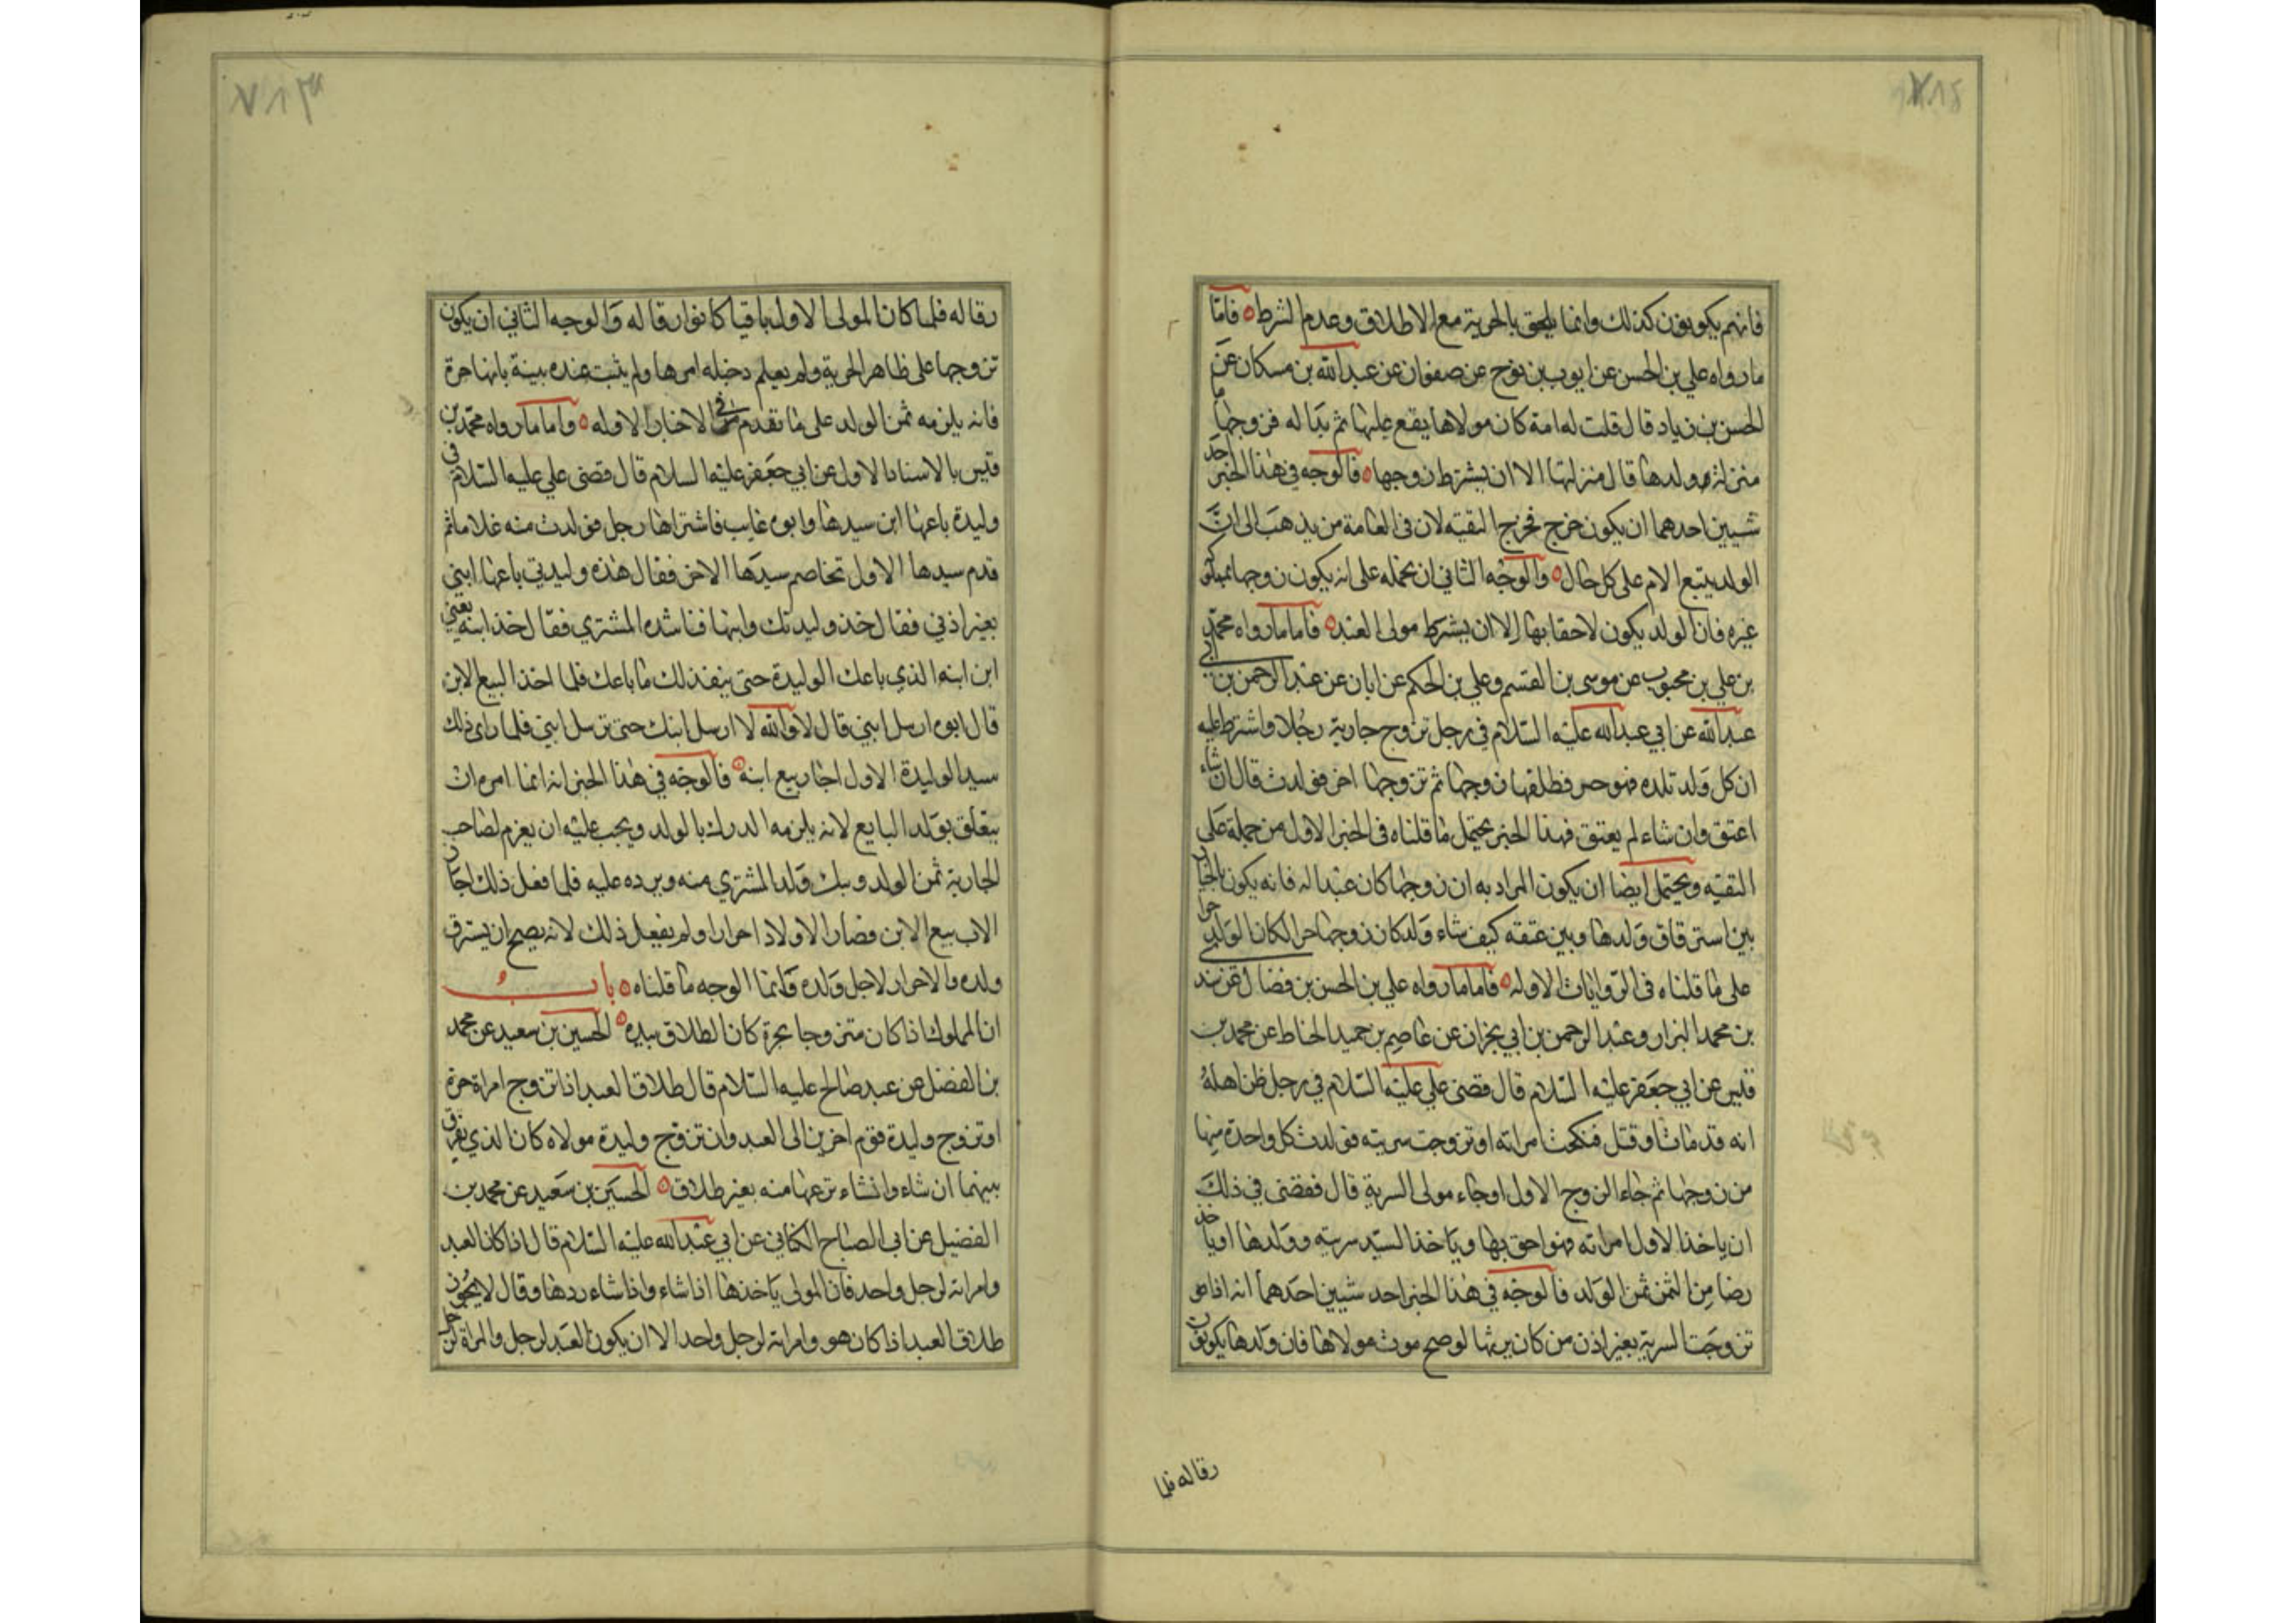 فانهم يكونون كذلك وانما يلحق بالحرية مع الاطلاق وعدم الشرط ه فاما
ما رواه علي بن الحسن عن ايوب بن نوح عن صفوان عن عبد الله بن مسكان عن
الحسن بن زياد قال قلت له امة كان مولاها يقع عليها ثم بدا له فزوجها ما
منزلة ولدها قال منزلتها الا ان يشترط زوجها ه فالوجه في هذا الخبر احد
شيئين احدهما ان يكون خرج مخرج التقيه لان في العامة من يذهب الى ان
الولد يتبع الام على كل حال ه والوجه الثاني ان نحمله على انه يكون زوجها مملوك
غيره فان الولد يكون لاحقا بها الا ان يشترط مولى العبد ه فاما ما رواه محمد
بن علي بن محبوب عن موسى بن القسم وعلي بن الحكم عن ابان عن عبد الرحمن بن ابي
عبد الله عن ابي عبد الله عليه السلام في رجل تزوج جارية رجلا واشترط عليه
ان كل ولد تلده فهو حر فطلقها زوجها ثم تزوجها اخر فولدت قال ان شاء
اعتق وان شاء لم يعتق فهذا الخبر يحتمل ما قلناه في الخبر الاول من حمله على
التقيه ويحتمل ايضا ان يكون المراد به ان زوجها كان عبدا له فانه يكون بالخيار
بين استرقاق ولدها وبين عتقه كيف شاء ولو كان زوجها حرا لكان الولد حرا
على ما قلناه في الروايات الاوله ه فاما ما رواه علي بن الحسن بن فضال عن سند
بن محمد البزار وعبد الرحمن بن ابي نجران عن عاصم بن حميد الحناط عن محمد بن
قيس عن ابي جعفر عليه السلام قال قضى علي عليه السلام في رجل ظن اهله
انه قد مات او قتل فنكحت امراته او تزوجت سريته فولدت كل واحدة منهما
من زوجها ثم جاء الزوج الاول او جاء مولى السرية قال فقضى في ذلك
ان ياخذ الاول امراته فهو احق بها وياخذ السيد سريته وولدها او ياخذ
رضا من الثمن ثمن الولد فالوجه في هذا الخبر احد شيئين احدهما انه اذا هو
تزوجت السرية بغير اذن من كان يرثها لو صح موت مولاها فان ولدها يكونون
رقا له فلما
رقا له فلما كان المولى الاول باقيا كانوا رقا له والوجه الثاني ان يكون
تزوجها على ظاهر الحرية ولم يعلم دخيله امرها ولم يثبت عنده بينة بانها حرة
فانه يلزمه ثمن الولد على ما تقدم في الاخبار الاوله ه واما ما رواه محمد بن
قيس بالاسناد الاول عن ابي جعفر عليه السلام قال قضى علي عليه السلام في
وليدة باعها ابن سيدها وابوه غايب فاشتراها رجل فولدت منه غلاما ثم
قدم سيدها الاول تخاصم سيدها الاخر فقال هذه وليدتي باعها ابني
بغير اذني فقال خذ وليدتك وابنها فناشده المشتري فقال خذ ابنه يعني
ابن ابنه الذي باعك الوليدة حتى ينفذ لك ما باعك فلما اخذ البيع الابن
قال ابوه ارسل ابني قال لا والله لا ارسل ابنك حتى ترسل ابني فلما راى ذلك
سيد الوليدة الاول اجاز بيع ابنه ه فالوجه في هذا الخبر انه انما امره ان
يتعلق بولد البايع لانه يلزمه الدرك بالولد ويجب عليه ان يغرم لصاحب
الجارية ثمن الولد ويفك ولد المشتري منه ويرده عليه فلما فعل ذلك اجاز
الاب بيع الابن فصار الاولاد احرارا ولم يفعل ذلك لانه يصح ان يسترق
ولده ما لاحرار لاجل ولده وانما الوجه ما قلناه ه باب
ان المملوك اذا كان متزوجا بحرة كان الطلاق بيده ه الحسين بن سعيد عن محمد
بن الفضل عن عبد صالح عليه السلام قال طلاق العبد اذا تزوج امراة حرة
او تزوج وليدة قوم اخرين الى العبد وان تزوج وليدة مولاه كان الذي يفرق
بينهما ان شاء وان شاء نزعها منه بغير طلاق ه الحسين بن سعيد عن محمد بن
الفضيل عن ابي الصباح الكناني عن ابي عبد الله عليه السلام قال اذا كان العبد
وامراته لرجل واحد فان المولى ياخذها اذا شاء واذا شاء ردها وقال لا يجوز
طلاق العبد اذا كان هو وامراته لرجل واحد الا ان يكون العبد لرجل والمراة لرجل